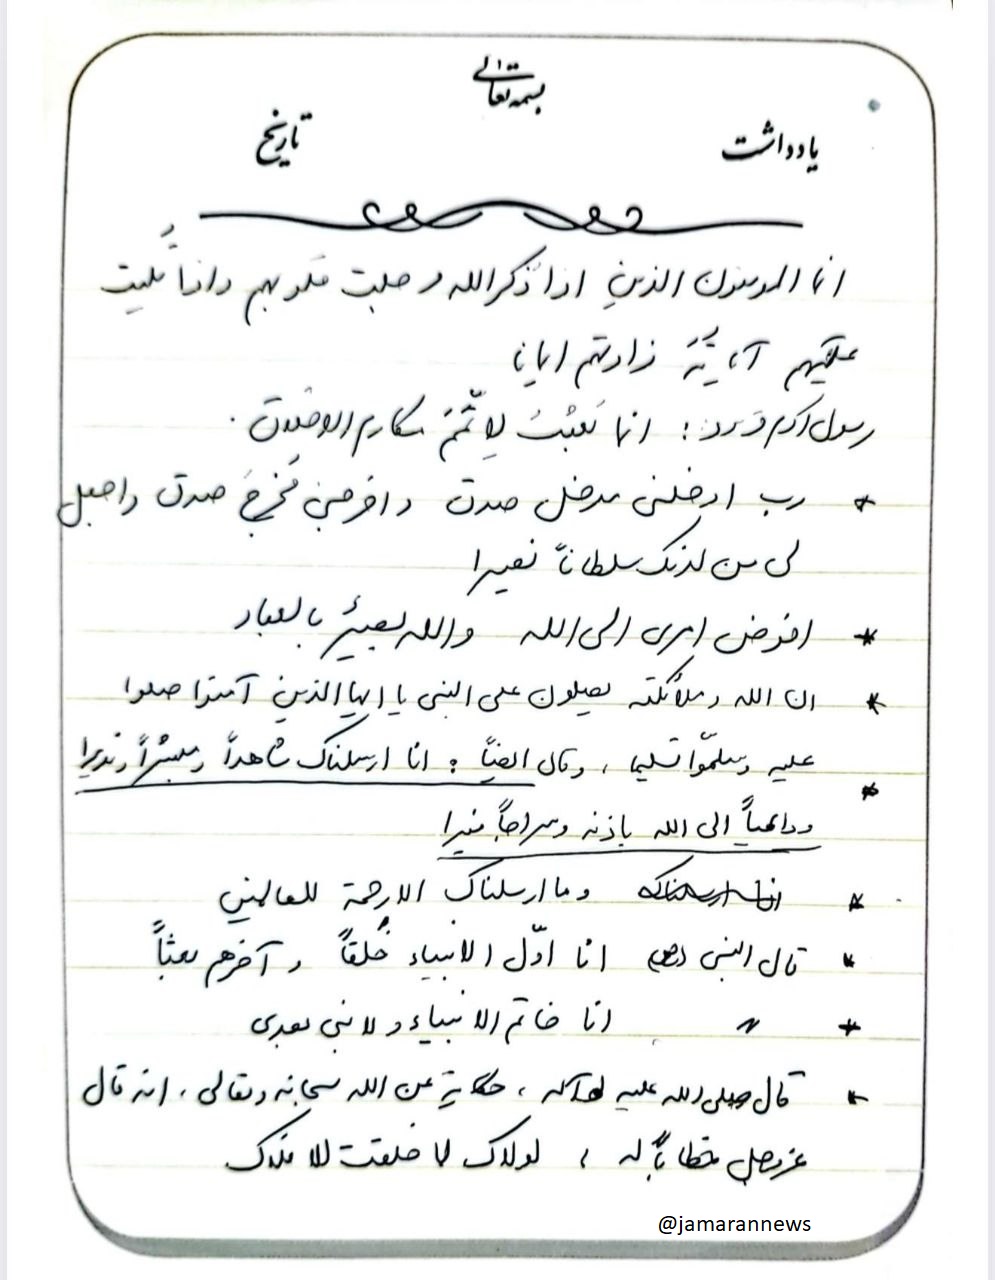 بسمه تعالی
یادداشت
تاریخ
انما المومنون الذین اذا ذُکر الله وجلت قلوبهم واذا تُلیت
علیهم آیاتُهُ زادتهم ایمانا
رسول اکرم فرمود : انما بُعِثْتُ لِاُتَمِّمَ مکارم الاخلاق .
* رب ادخلنی مدخل صدق و اخرجنی مُخرجَ صدق واجعل
لی من لدنک سلطاناً نصیرا
* افوض امری الی الله والله بصیرٌ بالعباد
* ان الله وملائکته یصلون علی النبی یا ایها الذین آمنوا صلوا
علیه وسلّموا تسلیما ، وقال ایضاً : انا ارسلناک شاهداً ومبشراً ونذیرا
* وداعیاً الی الله باذنه وسراجاً منیرا
* انا ارسلناک وما ارسلناک الا رحمة للعالمین
* قال النبی (ص) انا اوّل الانبیاء خُلقاً و آخرهم بعثاً
* 〃 انا خاتم الانبیاء ولا نبی بعدی
* قال صلی الله علیه وآله ، حکایة عن الله سبحانه وتعالی ، انه قال
عزوجل خطاباً له ، لولاک لما خلقت الافلاک
@jamarannews